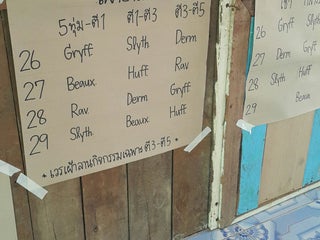 5ทุ่ม-ตี1 ตี1-ตี3 ตี3-ตี5
26 Gryff Slyth Derm
27 Beaux Huff Rav
28 Rav Derm Gryff
29 Slyth Beaux Huff
* เวรเฝ้าลานกิจกรรมเฉพาะ ตี3-ตี5 *
26 Slyth Gryff
27 Derm
28 Slyth
29 Beaux